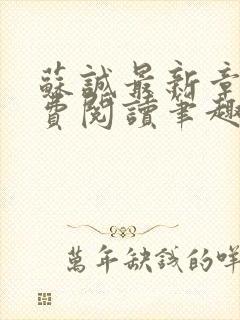 蘇誠最新章
費閱讀筆趣
萬年缺錢的咩